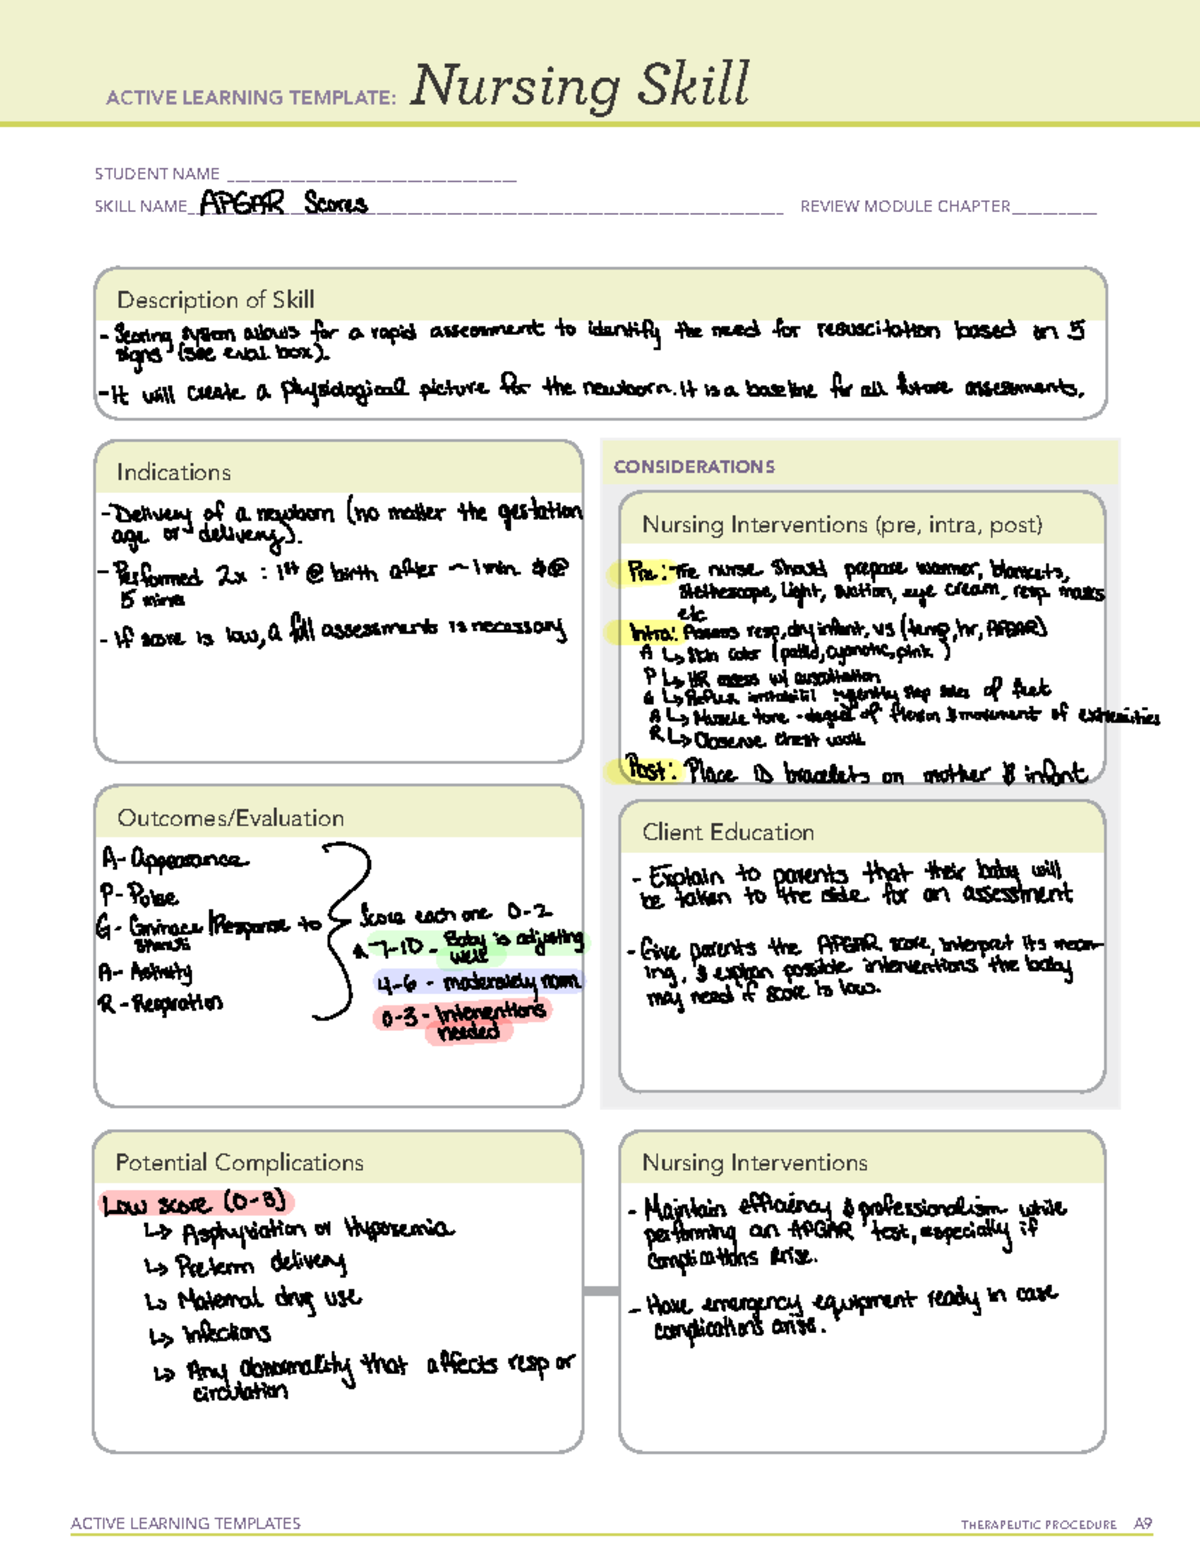 ACTIVE LEARNING TEMPLATE: Nursing Skill
STUDENT NAME
SKILL NAME APGAR Scores REVIEW MODULE CHAPTER
Description of Skill
- Scoring system allows for a rapid assessment to identify the need for resuscitation based on 5
signs (see eval box).
- It will create a physiological picture for the newborn. It is a baseline for all future assessments.
Indications
- Delivery of a newborn (no matter the gestation
age or delivery).
- Performed 2x : 1st @ birth after ~ 1 min & @
5 mins
- If score is low, a full assessments is necessary
CONSIDERATIONS
Nursing Interventions (pre, intra, post)
Pre: The nurse should prepare warmer, blankets,
stethoscope, light, suction, eye cream, resp masks
etc
Intra: Assess resp, dry infant, vs (temp, hr, APGAR)
A ↳ Skin color (pallid, cyanotic, pink)
P ↳ HR assess w/ auscultation
G ↳ Reflex gently slap soles of feet
A ↳ Muscle tone - degree of flexion & movement of extremities
R ↳ Observe chest wall
Post: Place ID bracelets on mother & infant
Outcomes/Evaluation
A - Appearance
P - Pulse
G - Grimace/Response to
stimuli
A - Activity
R - Respiration
Score each one 0-2
7-10 - Baby is adjusting
well
4-6 - moderately
0-3 - Interventions
needed
Client Education
- Explain to parents that their baby will
be taken to the side for an assessment
- Give parents the APGAR score, interpret its mean-
ing, & explain possible interventions the baby
may need if score is low.
Potential Complications
Low score (0-3)
↳ Asphyxiation or Hypoxemia
↳ Preterm delivery
↳ Maternal drug use
↳ Infections
↳ Any abnormality that affects resp or
circulation
Nursing Interventions
- Maintain efficiency & professionalism while
performing an APGAR test, especially if
complications arise.
- Have emergency equipment ready in case
complications arise.
ACTIVE LEARNING TEMPLATES THERAPEUTIC PROCEDURE A9